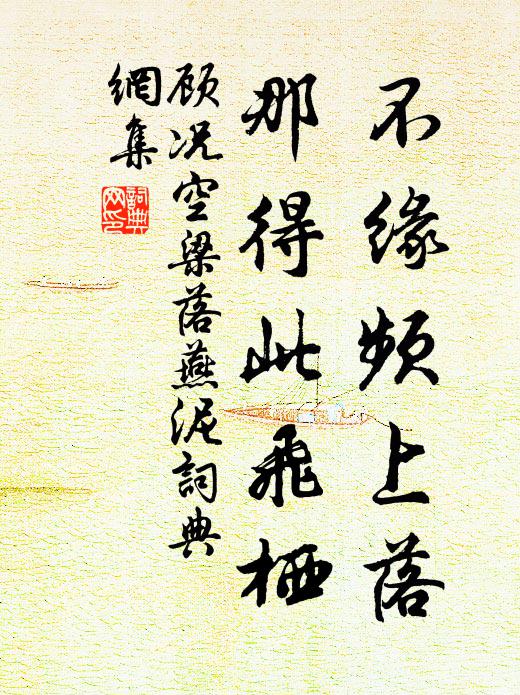 不缘频上落
那得此飛栖
顾况空梁落燕泥詞典
網集
詞典网印